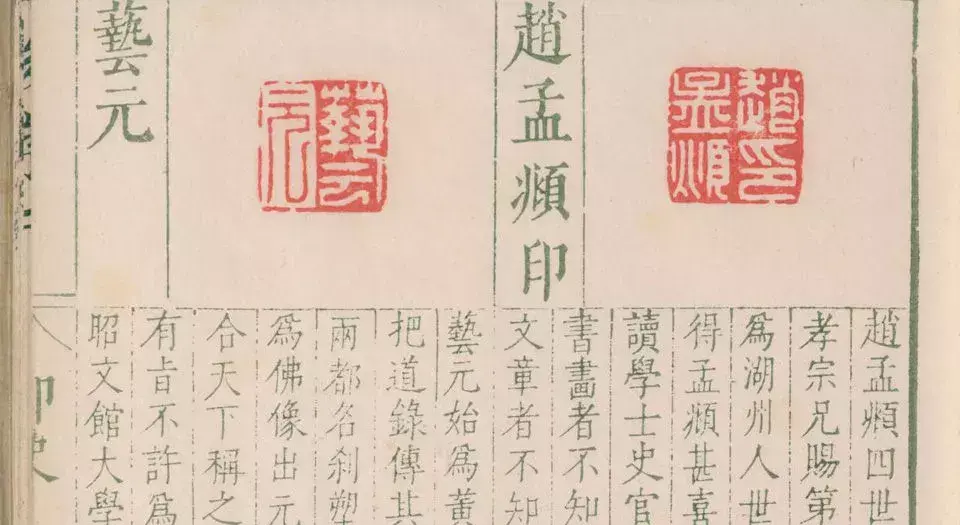 趙印
孟頫
趙孟頫印
藝元
藝元
趙孟頫四世
孝宗兄賜第
爲湖州人世
得孟頫甚喜
讀學士史官
書畫者不知
文章者不知
藝元始爲黃
把道錄傳其
兩都名刹塑
爲佛像出元
合天下稱之
有旨不許爲
昭文館大學
印史